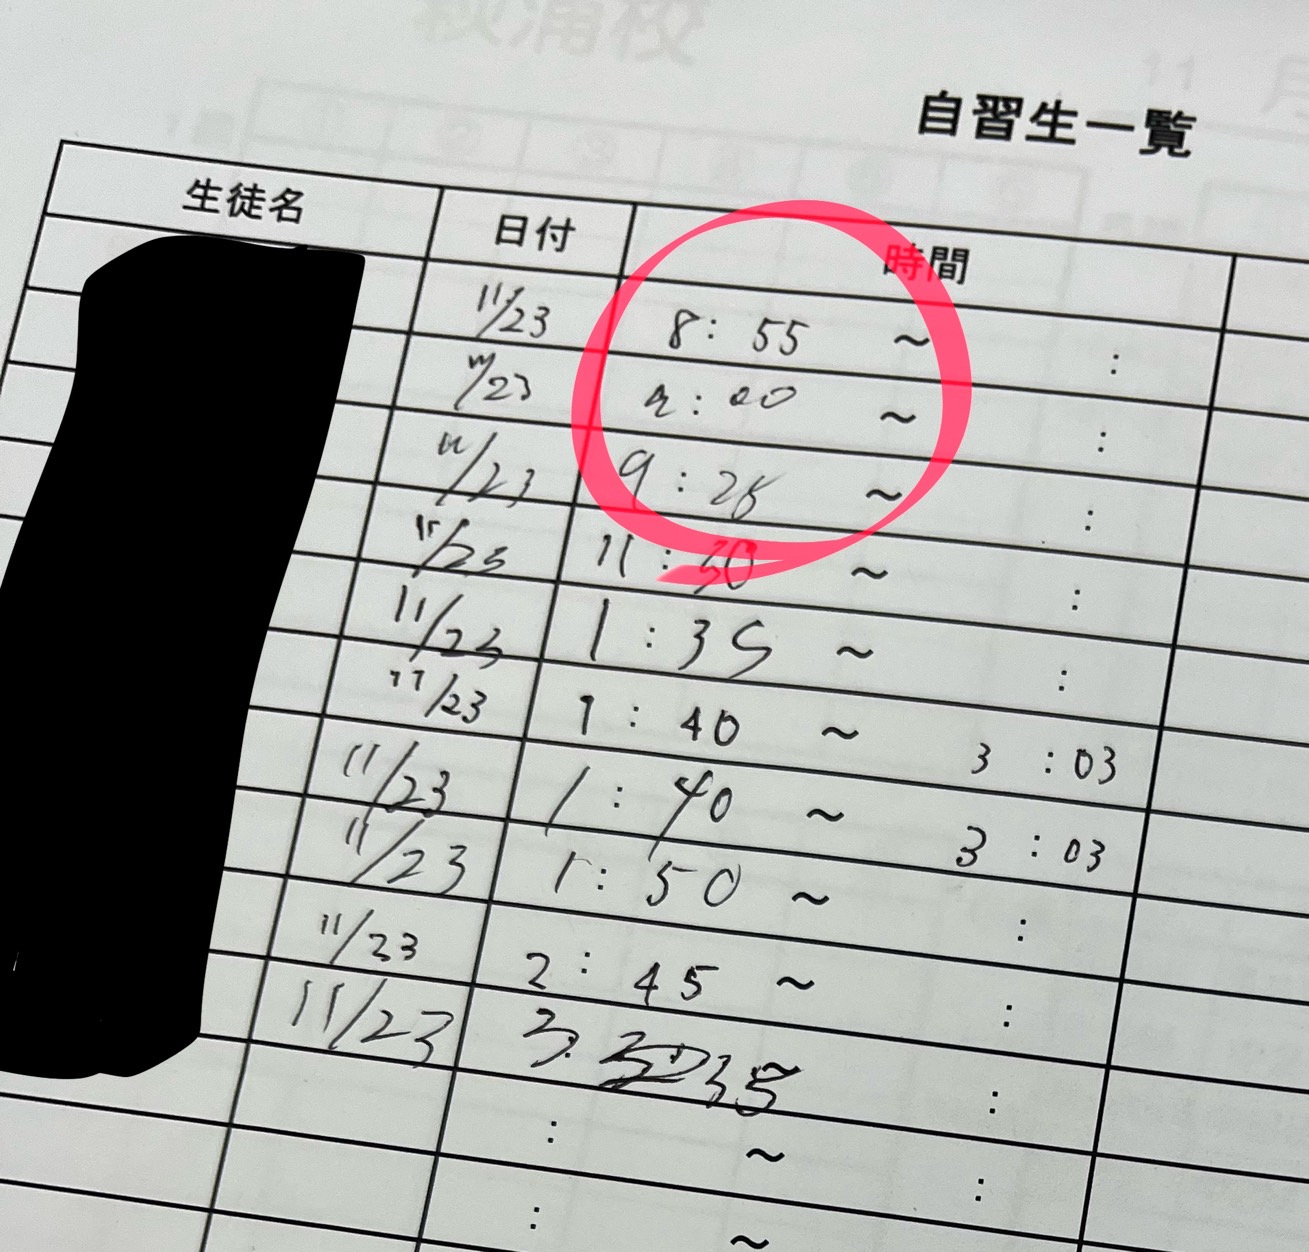 自習生一覧
生徒名 日付 時間
11/23 8:55 ~ :
11/23 9:00 ~ :
11/23 9:28 ~ :
11/23 11:30 ~ :
11/23 1:35 ~ :
11/23 1:40 ~ 3:03
11/23 1:40 ~ 3:03
11/23 1:50 ~ :
11/23 2:45 ~ :
11/23 3: 35 ~ :
: ~ :
: ~